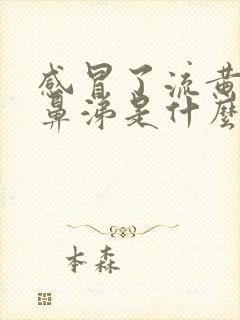 感冒了流黄
鼻涕是什麼
本森